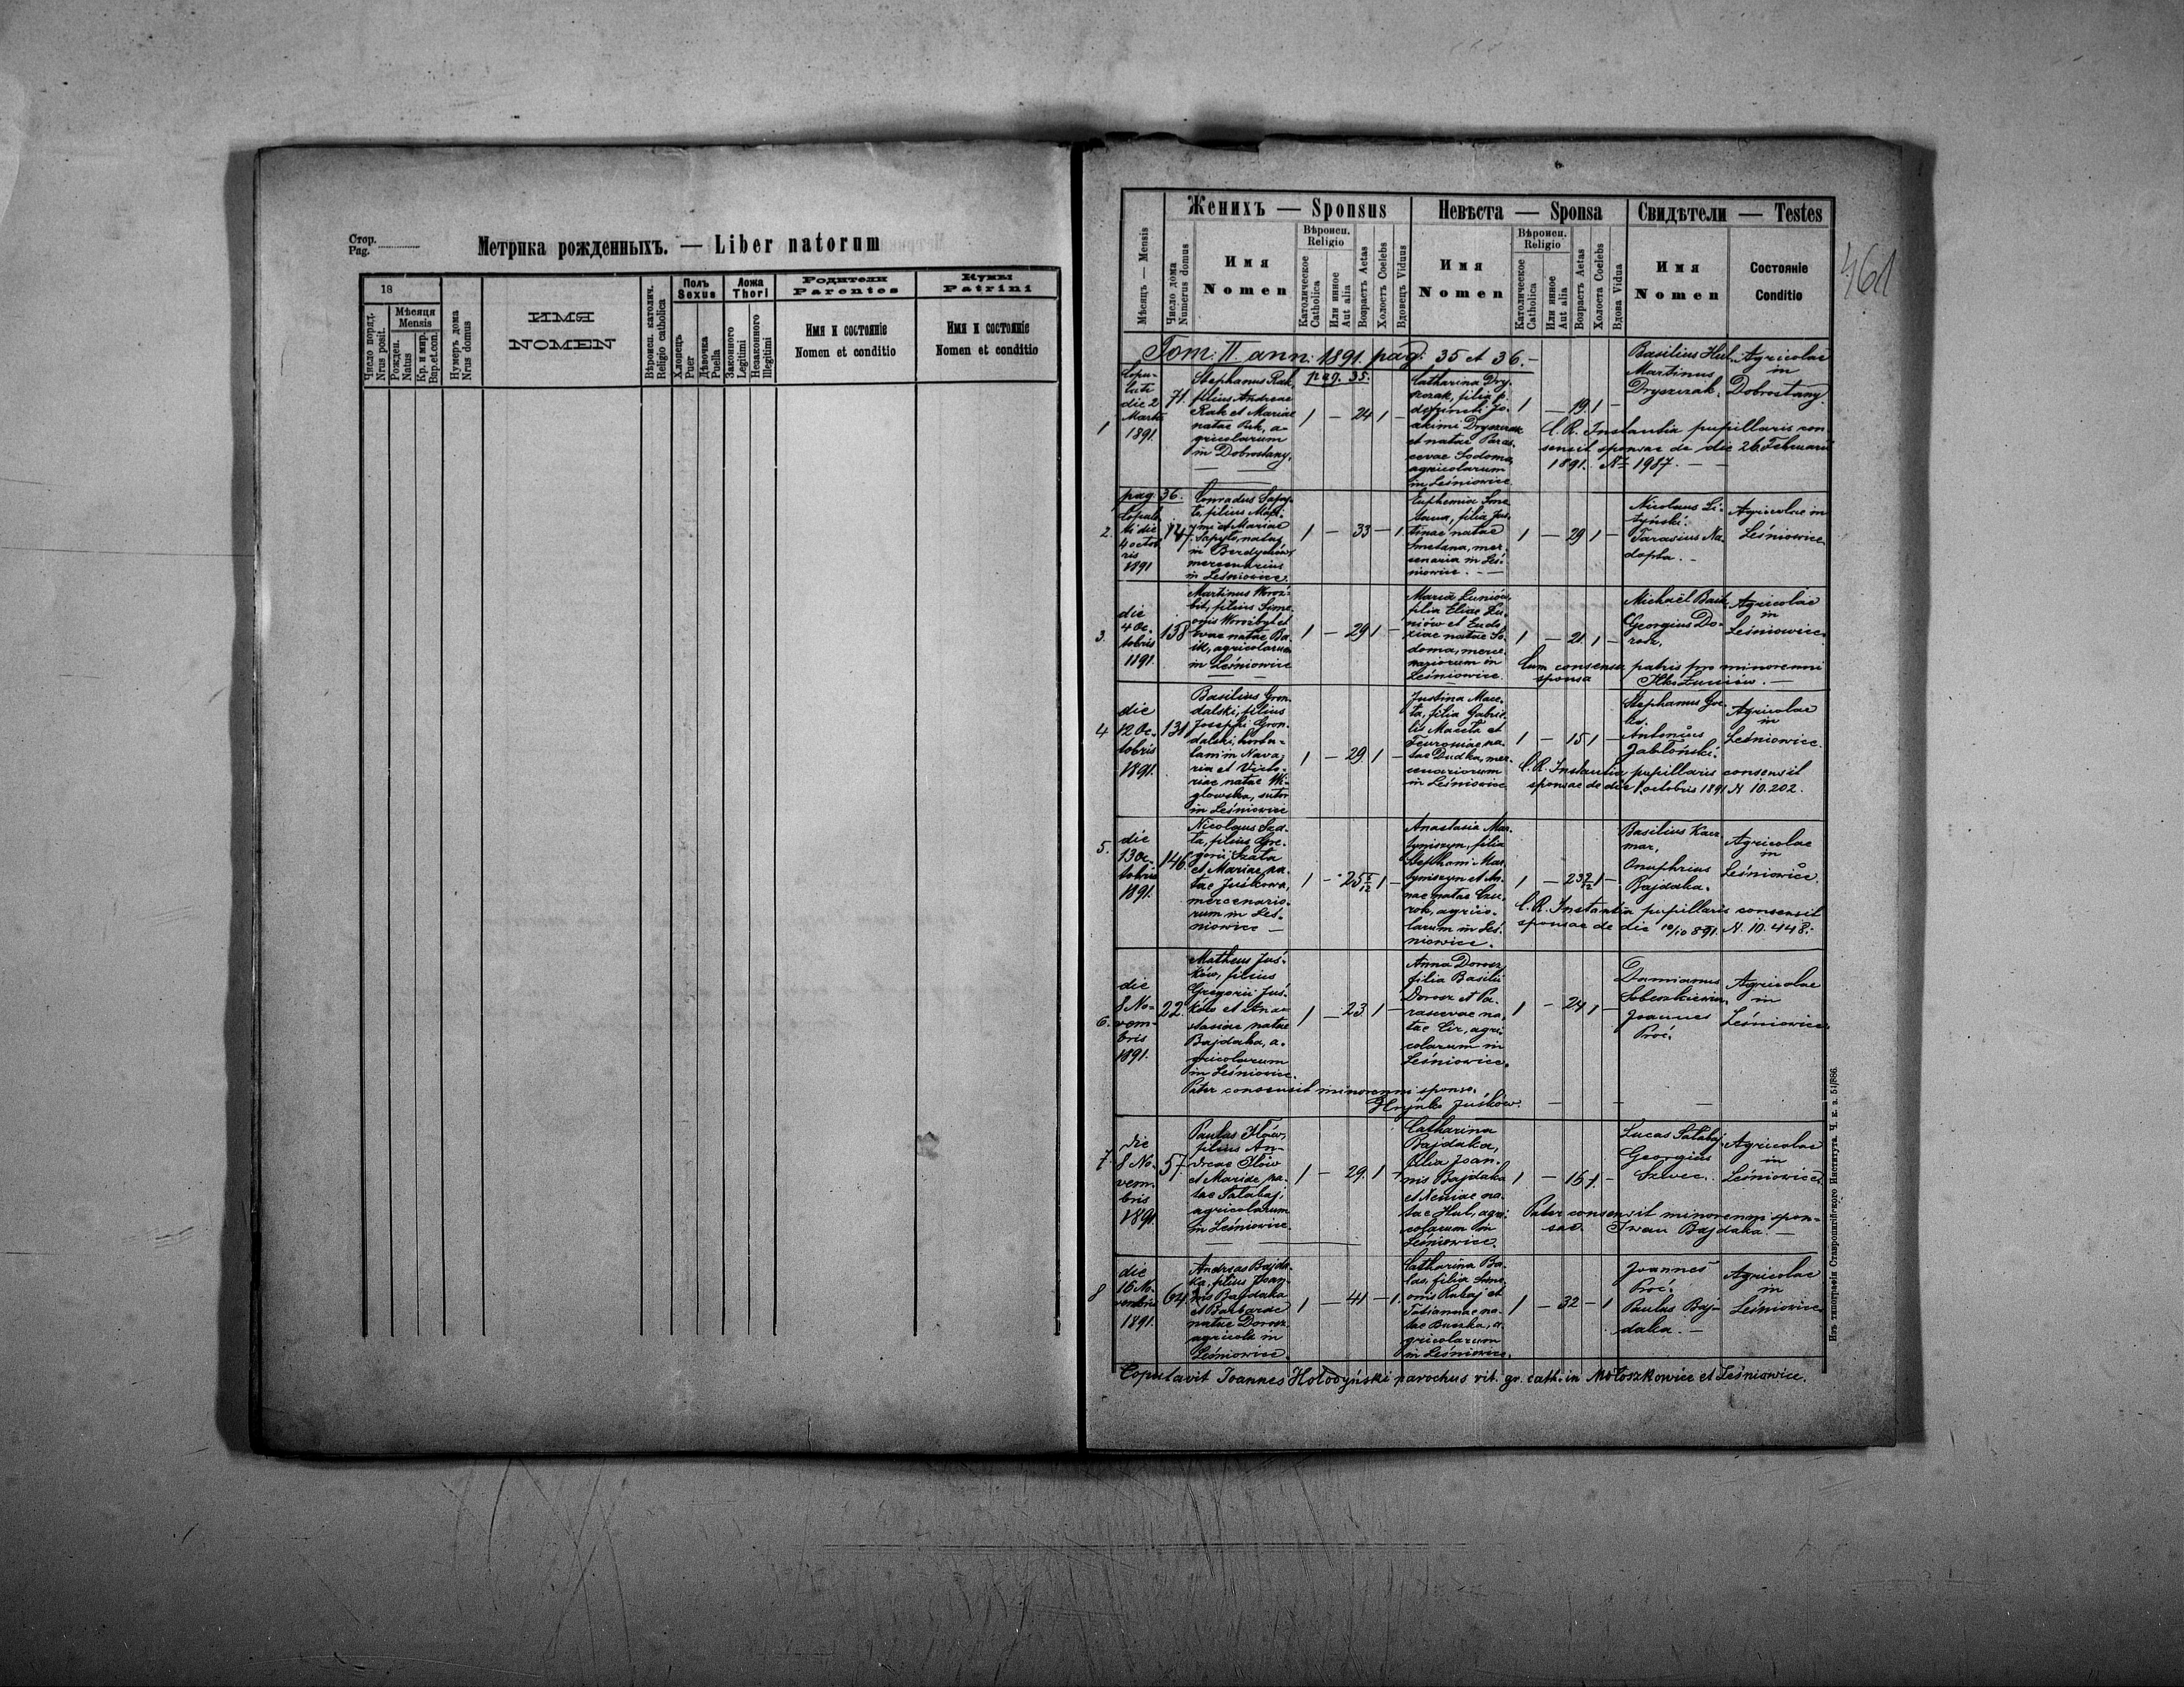 Стор.
Pag.
Метрика рожденныхъ. — Liber natorum
18
Число поряд.
Nrus posit.
Мѣсяця
Mensis
Рожден.
Natus
Кр. и мир.
Bap.et.con.
Нумеръ дома
Nrus domus
ИМЯ
NOMEN
Вѣроисп. католич.
Religio catholica
Полъ
Sexus
Хлопець
Puer
Дѣвочка
Puella
Ложа
Thori
Законного
Legitimi
Незаконного
Illegitimi
Родители
Parentes
Имя и состояніе
Nomen et conditio
Кумы
Patrini
Имя и состояніе
Nomen et conditio
461
Женихъ — Sponsus
Невѣста — Sponsa
Свидѣтели — Testes
Мѣсяць — Mensis
Число дома
Numerus domus
Имя
Nomen
Вѣроисп.
Religio
Католическое
Catholica
Или инное
Aut alia
Возрастъ Aetas
Холостъ Coelebs
Вдовецъ Viduus
Имя
Nomen
Вѣроисп.
Religio
Католическое
Catholica
Или инное
Aut alia
Возрастъ Aetas
Холоста Coelebs
Вдова Vidua
Имя
Nomen
Состояніе
Conditio
Tom: II. ann: 1891. pag: 35 et 36. –
pag. 35.
1
Copu-
lati
die 2
Martii
1891.
71.
Stephanus Rak,
filius Andreae
Rak et Mariae
natae Puk, a-
gricolarum
in Dobrostany.
1 — 24 1 —
Catharina Dry-
szczak, filia p.
defuncti Jo-
akimi Dryszczak
et natae Paras-
cevae Sodoma,
agricolarum
in Leśniowice.
1 — 19. 1 —
Basilius Hul.
Martinus
Dryszczak.
Agricolae
in
Dobrostany.
C. R. Instantia pupillaris con-
sensit sponsae de die 26. Februarii
1891. № 1987. — —
pag. 36.
2.
Copula-
ti die
4 octob-
ris
1891
147.
Conradus Sapy-
ta, filius Maxi-
ymi et Mariae
Sapyto, natus
in Berdychów,
mercenarius
in Leśniowice.
1 — 33 — 1.
Euphemia Sme-
tana, filia Jus-
tinae natae
Smetana, mer-
cenaria in Leś-
niowice. —
1 — 29 1 —
Nicolaus Li-
tyński.
Tarasius Na-
dopta. –
Agricolae in
Leśniowice
3.
die
4 Oc-
tobris
1891.
138
Martinus Woroż-
bit, filius Sime-
onis Worożbyt et
Evae natae Ba-
ik, agricolarum
in Leśniowice
1 — 29 1 —
Maria Luniów,
filia Eliae Lu-
niów et Eudo-
xiae natae So-
doma, merce-
nariorum in
Leśniowice.
1 — 21. 1 —
Michaël Baik,
Georgius Do-
rosz,
Agricolae
in
Leśniowice.
Cum consensu patris pro minorenni
sponsa Ilko Luniów. —
4
die
12 Oc-
tobris
1891.
131
Basilius Gron-
dalski, filius
Josephi Gron-
dalski,
in Nava-
ria et Victo-
riae natae Wi-
glowska, sutor
in Leśniowice
1 — 29 1 —
Justina Mace-
ta, filia Gabrie-
lis Maceta et
Feuroniae na-
tae Dudka, mer-
cenariorum
in Leśniowice
1 — 15 1 —
Stephanus
Antonius
Jabłoński.
Agricolae
in
Leśniowice.
C. R. Instantia pupillaris consensit
sponsae de die 1 octobris 1891 N 10.202.
5.
die
13 Oc-
tobris
1891.
146.
Nicolaus Sza-
ta, filius Gre-
gorii Szata
et Mariae na-
tae Juśkowa,
mercenario-
rum in Leś-
niowice —
1 — 25 5/12 1 —
Anastasia Mar-
tyniszyn, filia
Stephani Mar-
tyniszyn et An-
nae natae Czu-
rok, agrico-
larum in Leś-
niowice.
1 — 23 9/12 1 —
Basilius Kacz-
mar,
Onuphrius
Bajdaka.
Agricolae
in
Leśniowice.
C. R. Instantia pupillaris consensit
sponsae de die 10/10 891. N. 10.448.
6.
die
8 No-
vem-
bris
1891.
22.
Matheus Juś-
ków, filius
Gregorii Juś-
ków et Ana-
stasiae natae
Bajdaka, a-
gricolarum
in Leśniowice.
1 — 23 1 —
Anna Dorosz
filia Basilii
Dorosz et Pa-
rascevae na-
tae Cir, agri-
colarum in
Leśniowice.
1 — 24 1 —
Damianus
Sobeszkiewicz,
Joannes
Proć.
Agricolae
in
Leśniowice.
Pater consensit minorenni sponso.
Hryńko Juśków. — — —
7.
die
8 No-
vem-
bris
1891
57
Paulus Ilów,
filius An-
dreae Ilów
et Mariae na-
tae Sałabaj,
agricolarum
in Leśniowice.
1 — 29. 1 —
Catharina
Bajdaka,
filia Joan-
nis Bajdaka
et Xeniae na-
tae Hul, agri-
colarum in
Leśniowice.
1 — 16 1. —
Lucas Sałabaj,
Georgius
Szwec.
Agricolae
in
Leśniowice
Pater consensit minorenni spon-
sae. Iwan Bajdaka. —
8
die
16 No-
vembris
1891.
64.
Andreas Bajda-
ka, filius Joan-
nis Bajdaka
et Barbarae
natae Dorosz
agricola in
Leśniowice.
1 — 41 — 1.
Catharina Ba-
las, filia Sime-
onis Rabaj et
Tatiannae na-
tae Buczka, a-
gricolarum
in Leśniowice.
1 — 32 — 1
Joannes
Proć.
Paulus Baj-
daka. —
Agricolae
in
Leśniowice
Copulavit Joannes Hołodyński parochus rit. gr. cath. in Mołoszkowice et Leśniowice.
Изъ типографіи Ставропигійского Института. Ч. к. з. 51/886.